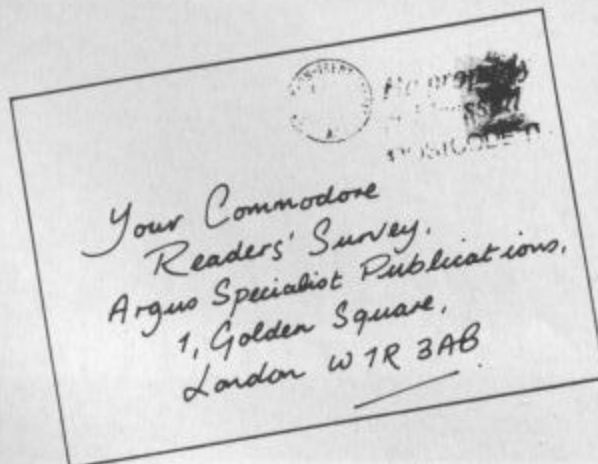 POSTCODE
Your Commodore
Readers' Survey,
Argus Specialist Publications,
1, Golden Square,
London W1R 3AB